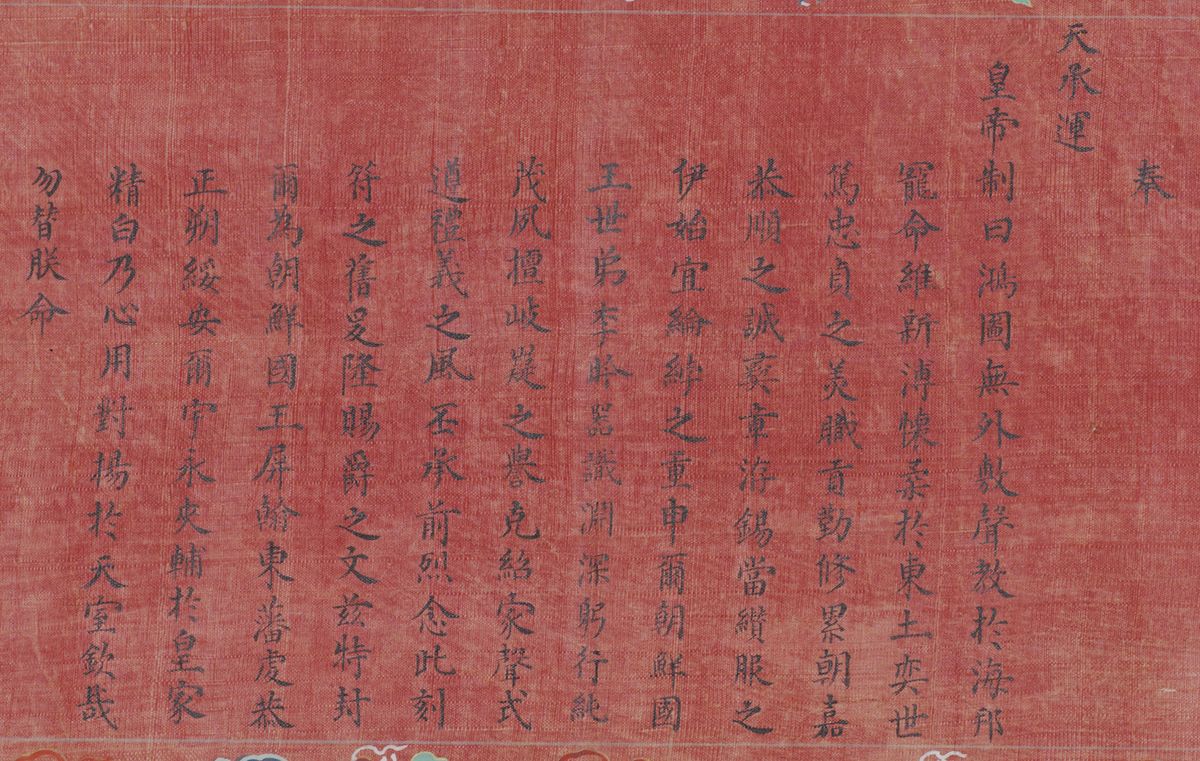 奉
天承運
皇帝制曰鴻圖無外敷聲教於海邦
寵命維新溥懷柔於東土奕世
篤忠貞之美職貢勤修累朝嘉
恭順之誠奕章洊錫當纘服之
伊始宜綸綍之重申爾朝鮮國
王世弟李昑器識淵深躬行純
茂夙擅岐嶷之譽克紹家聲式
遵禮義之風丕承前烈念此刻
符之舊爰隆賜爵之文兹特封
爾為朝鮮國王屏翰東藩虔恭
正朔綏安爾宇永夾輔於皇家
精白乃心用對揚於天室欽哉
勿替朕命